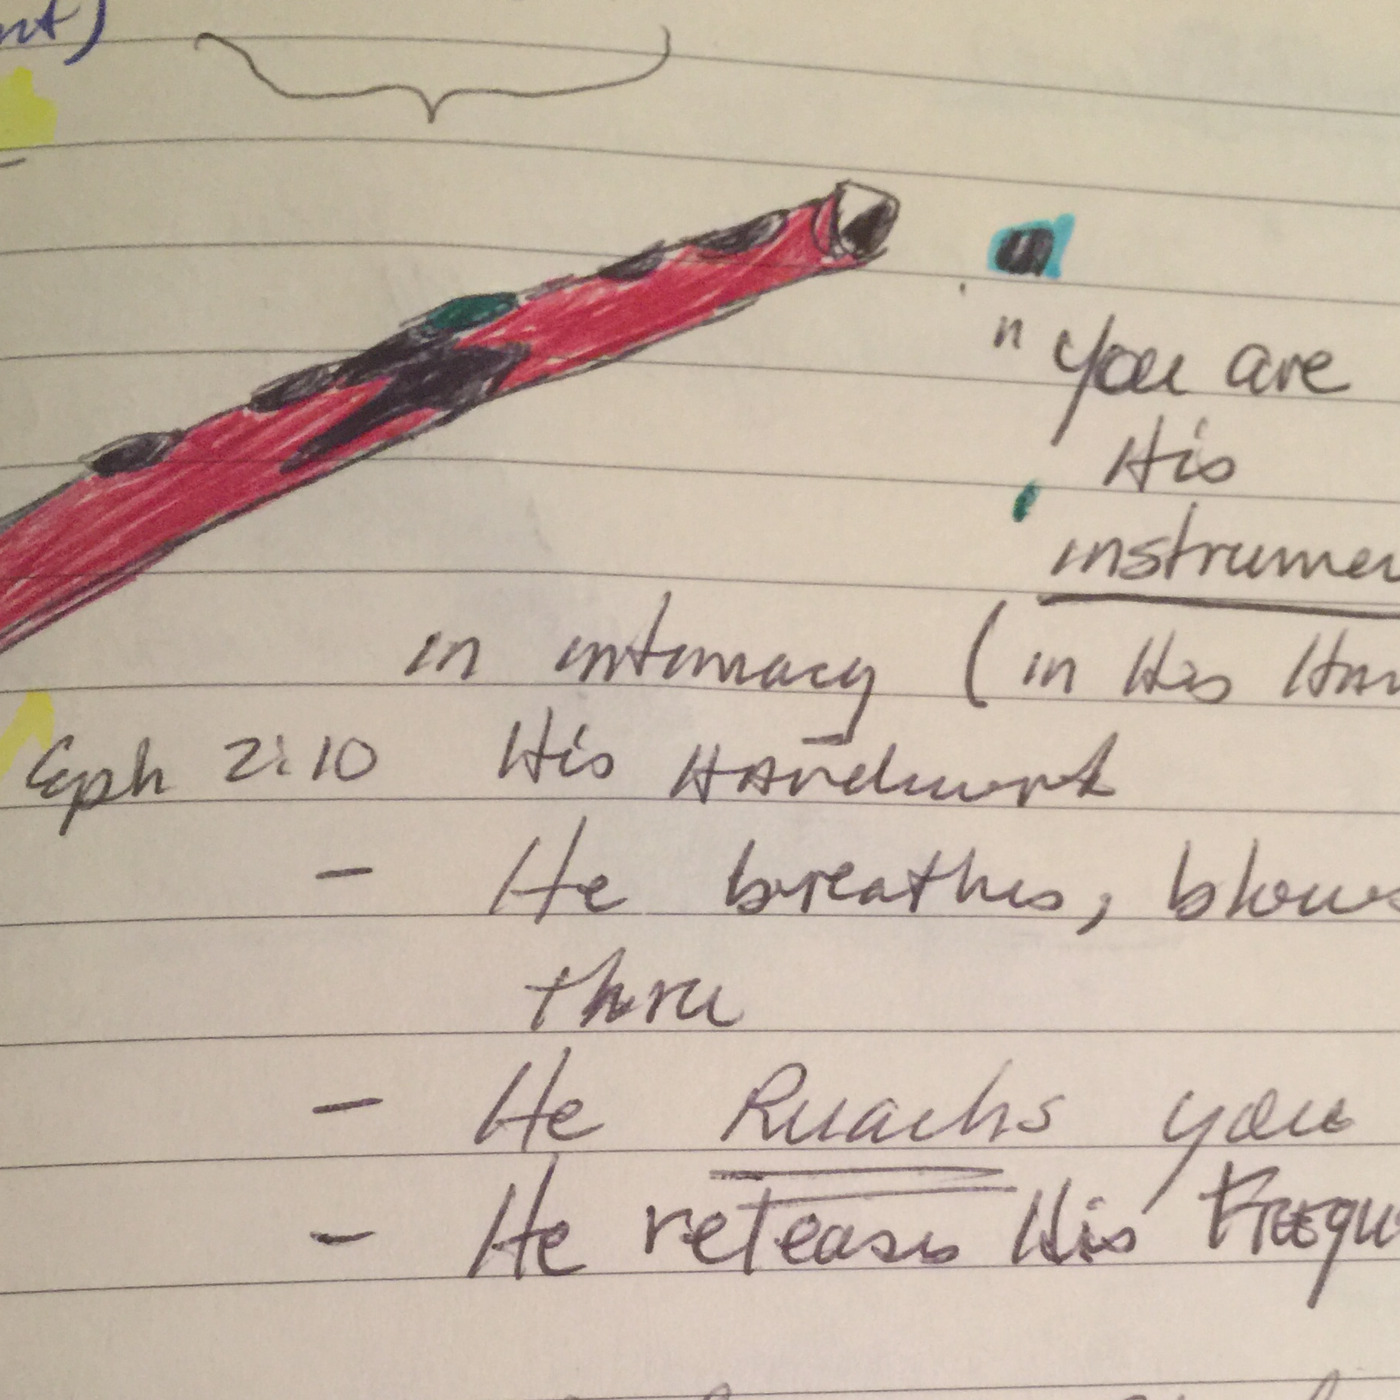 nt)
"you are
His
instrumen
in intimacy (in His Han
Eph 2:10 His Handiwork
- He breathes, blows
thru
- He Ruachs you
- He releases His Frequ